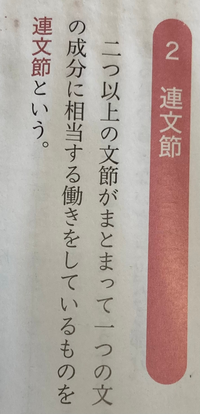 2 連文節
二つ以上の文節がまとまって一つの文
の成分に相当する働きをしているものを
連文節という。